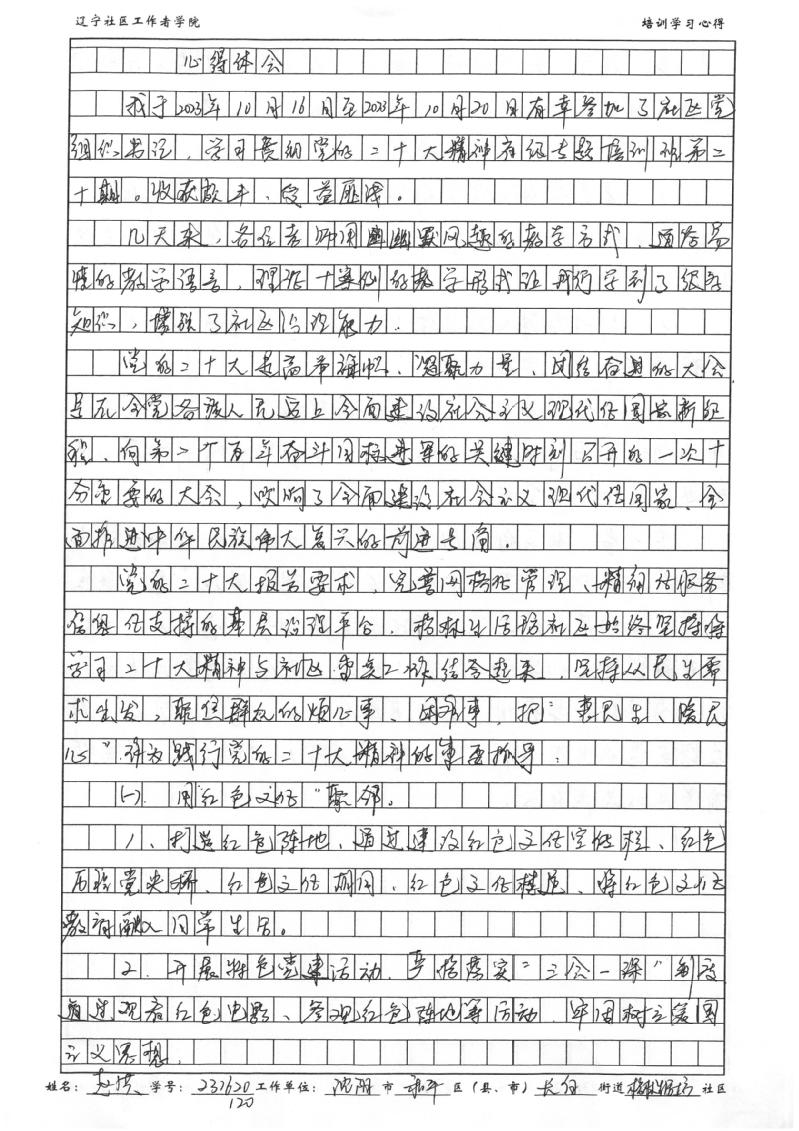 辽宁社区工作者学院 培训学习心得
心得体会
我于2023年10月16日至2023年10月20日有幸参加了社区党
组织书记,学习贯彻党的二十大精神专题培训班第二
十期。收获颇丰、受益匪浅。
几天来,各位老师用幽默风趣的教学方式,通俗易
懂的教学语言,理论+案例的教学形式让我们学到了很多
知识,增强了社区治理能力.
党的二十大是高举旗帜、凝聚力量、团结奋进的大会
是在全党各族人民迈上全面建设社会主义现代化国家新征
程、向第二个百年奋斗目标进军的关键时刻召开的一次十
分重要的大会,吹响了全面建设社会主义现代化国家、全
面推进中华民族伟大复兴的前进号角.
党的二十大报告要求,完善网格化管理、精细化服务
信息化支撑的基层治理平台.格林生活坊社区始终坚持将
学习二十大精神与社区重点工作结合起来,坚持从民生需
求出发,聚焦群众的烦心事、困难事,把"惠民生、暖民
心"作为践行党的二十大精神的重要抓手.
(一).用"红色文化"聚邻。
1、打造红色阵地、通过建设红色文化宣传栏、红色
历程党史桥、红色文化胡同、红色文化楼道、将红色文化
教育融入日常生活。
2.开展特色党建活动.严格落实"三会一课"制度
通过观看红色电影、参观红色阵地等活动.牢固树立爱国
主义思想.
姓名:赵洪 学号:237620 工作单位:沈阳市和平区(县、市)长白街道格林生活坊社区
120